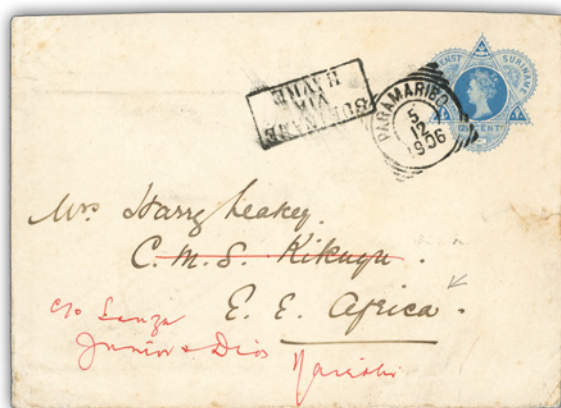 SURINAME
VIA
HAVRE
PARAMARIBO
5
12
1906
SURINAME
CENT
Mrs Harry Leakey.
C. M. S. Kikuyu.
E. E. Africa.
c/o Souza
Junior & Dias
Nairobi